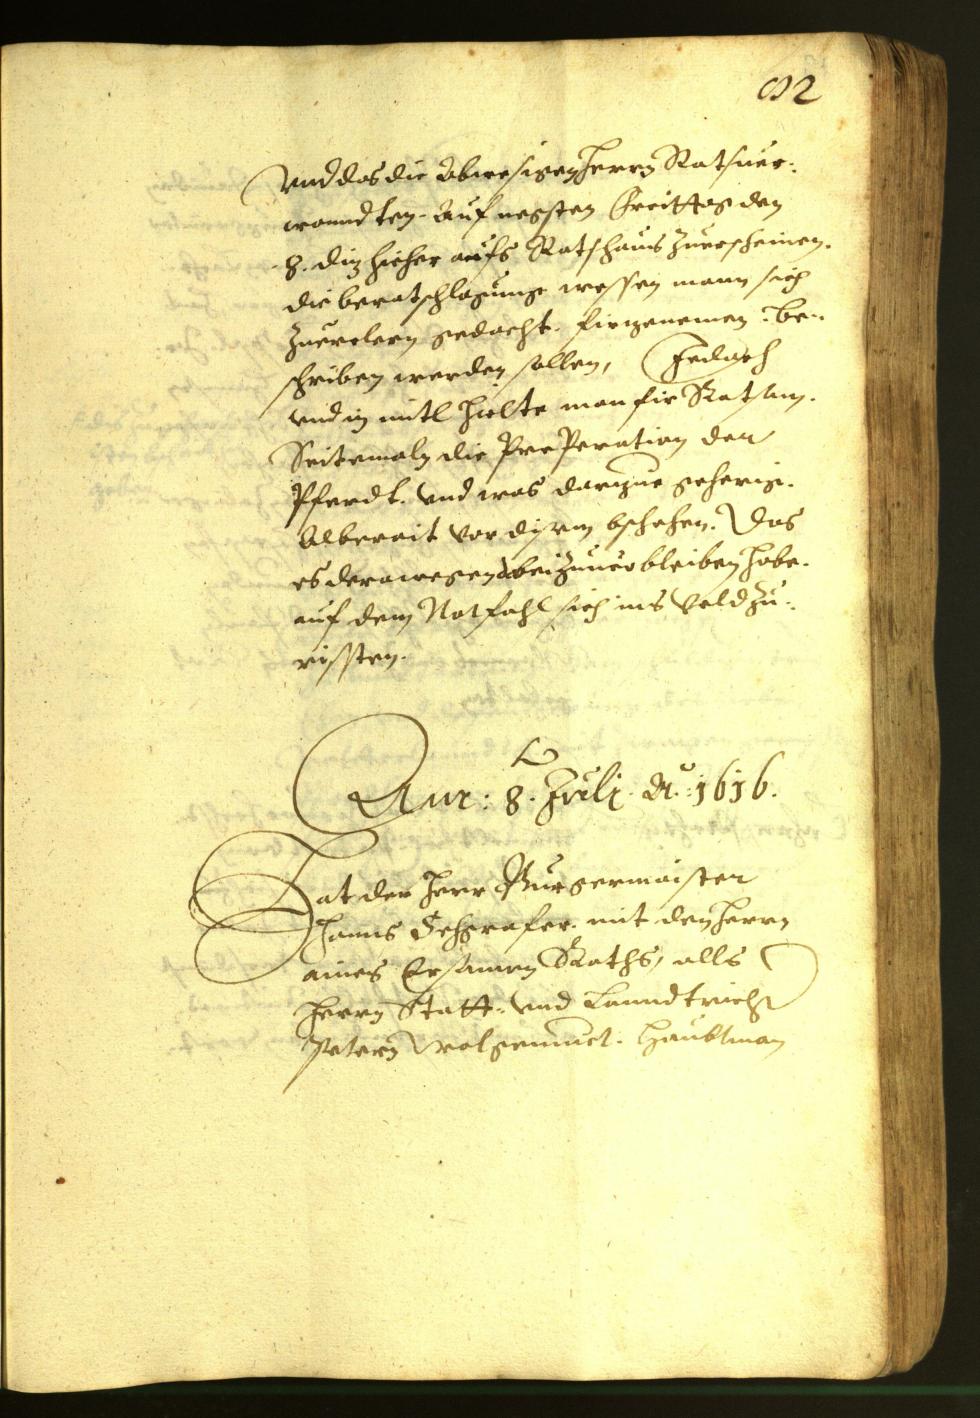 92
Vnd das die Abwesigen Herrn Ratsver-
wanndten. Auf negsten Freittag den
8. diz hieher aufs Rathaus zuerscheinen.
die beratschlagung wessen mann sich
zuercleren gedacht. firzenemen. be-
schriben werden sollen, Jedoch
vnd in mitl hielte man fir Ratsam.
Seitemaln die PrePeration der
Pferdt. vnd was darzue geherig.
Alberait vor disem bschehen. Das
es derowegen dabei zuuerbleiben habe.
auf dem Notfahl sich ins Veld zu-
rissten.
Anr: 8. Julj. Aº: 1616.
Hat der Herr Burgermaister
Hanns mit den Herrn
aines Ersamen Raths, alls
Herrn Statt- vnd Lanndtricht
Petern Wolgemuet. Haubtman